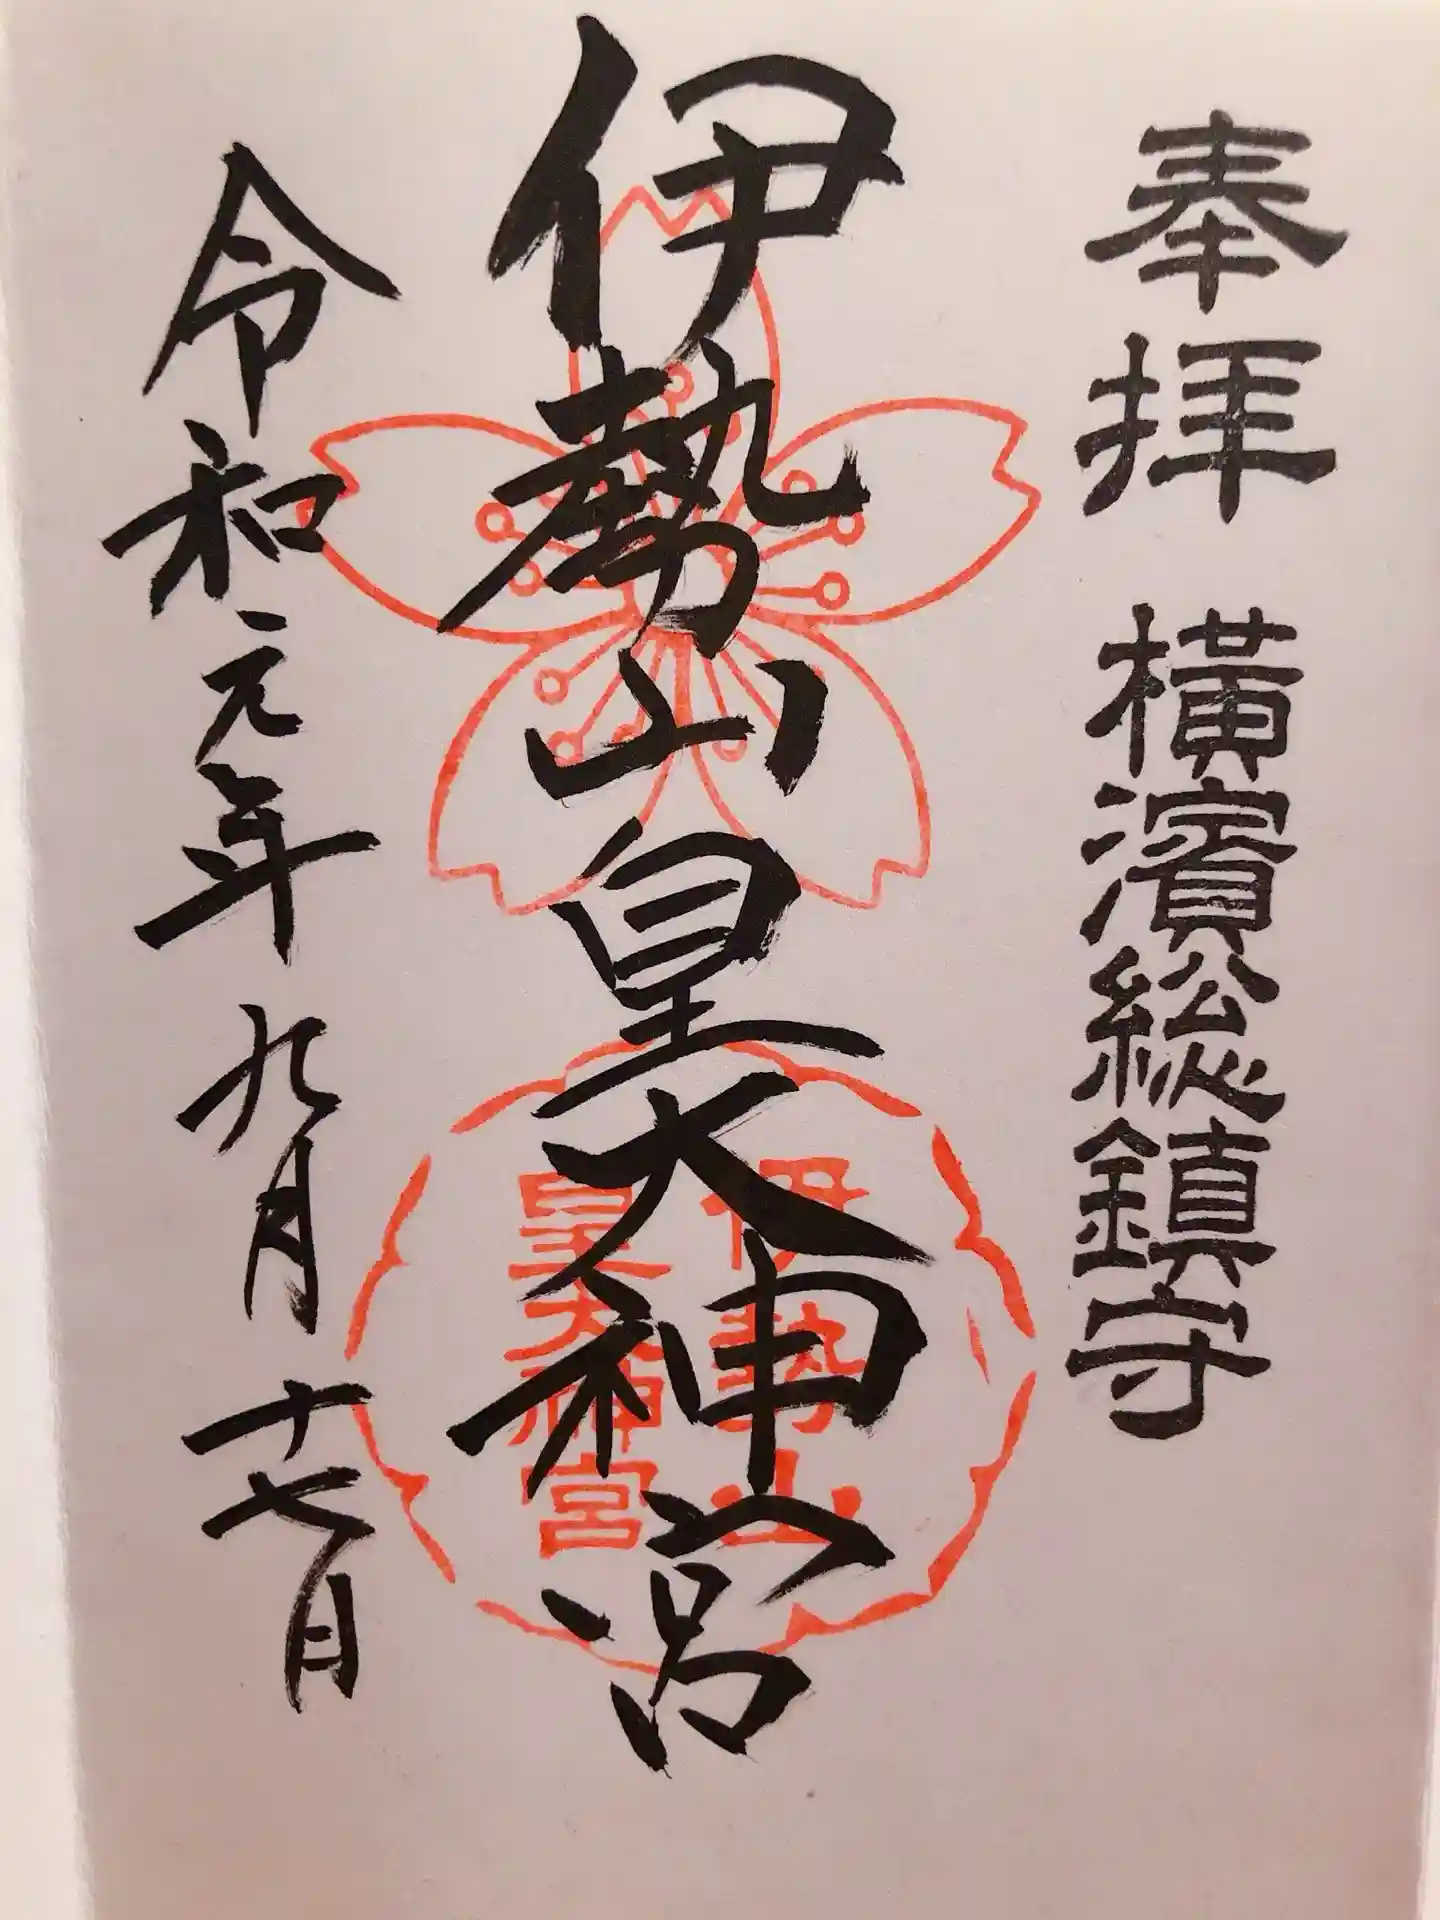 奉拝 横濱総鎮守
伊勢山皇大神宮
伊勢山
皇大神宮
令和元年九月十七日